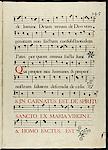 de lumine Deum verum de Deo vero
genitum non factum consubstantialem
Patri per quem omnia facta sunt.
Qui propter nos homines & propter
nostram salutem descendit de cœlis
INCARNATUS EST DE SPIRITU
SANCTO EX MARIA VIRGINE
& HOMO FACTUS EST